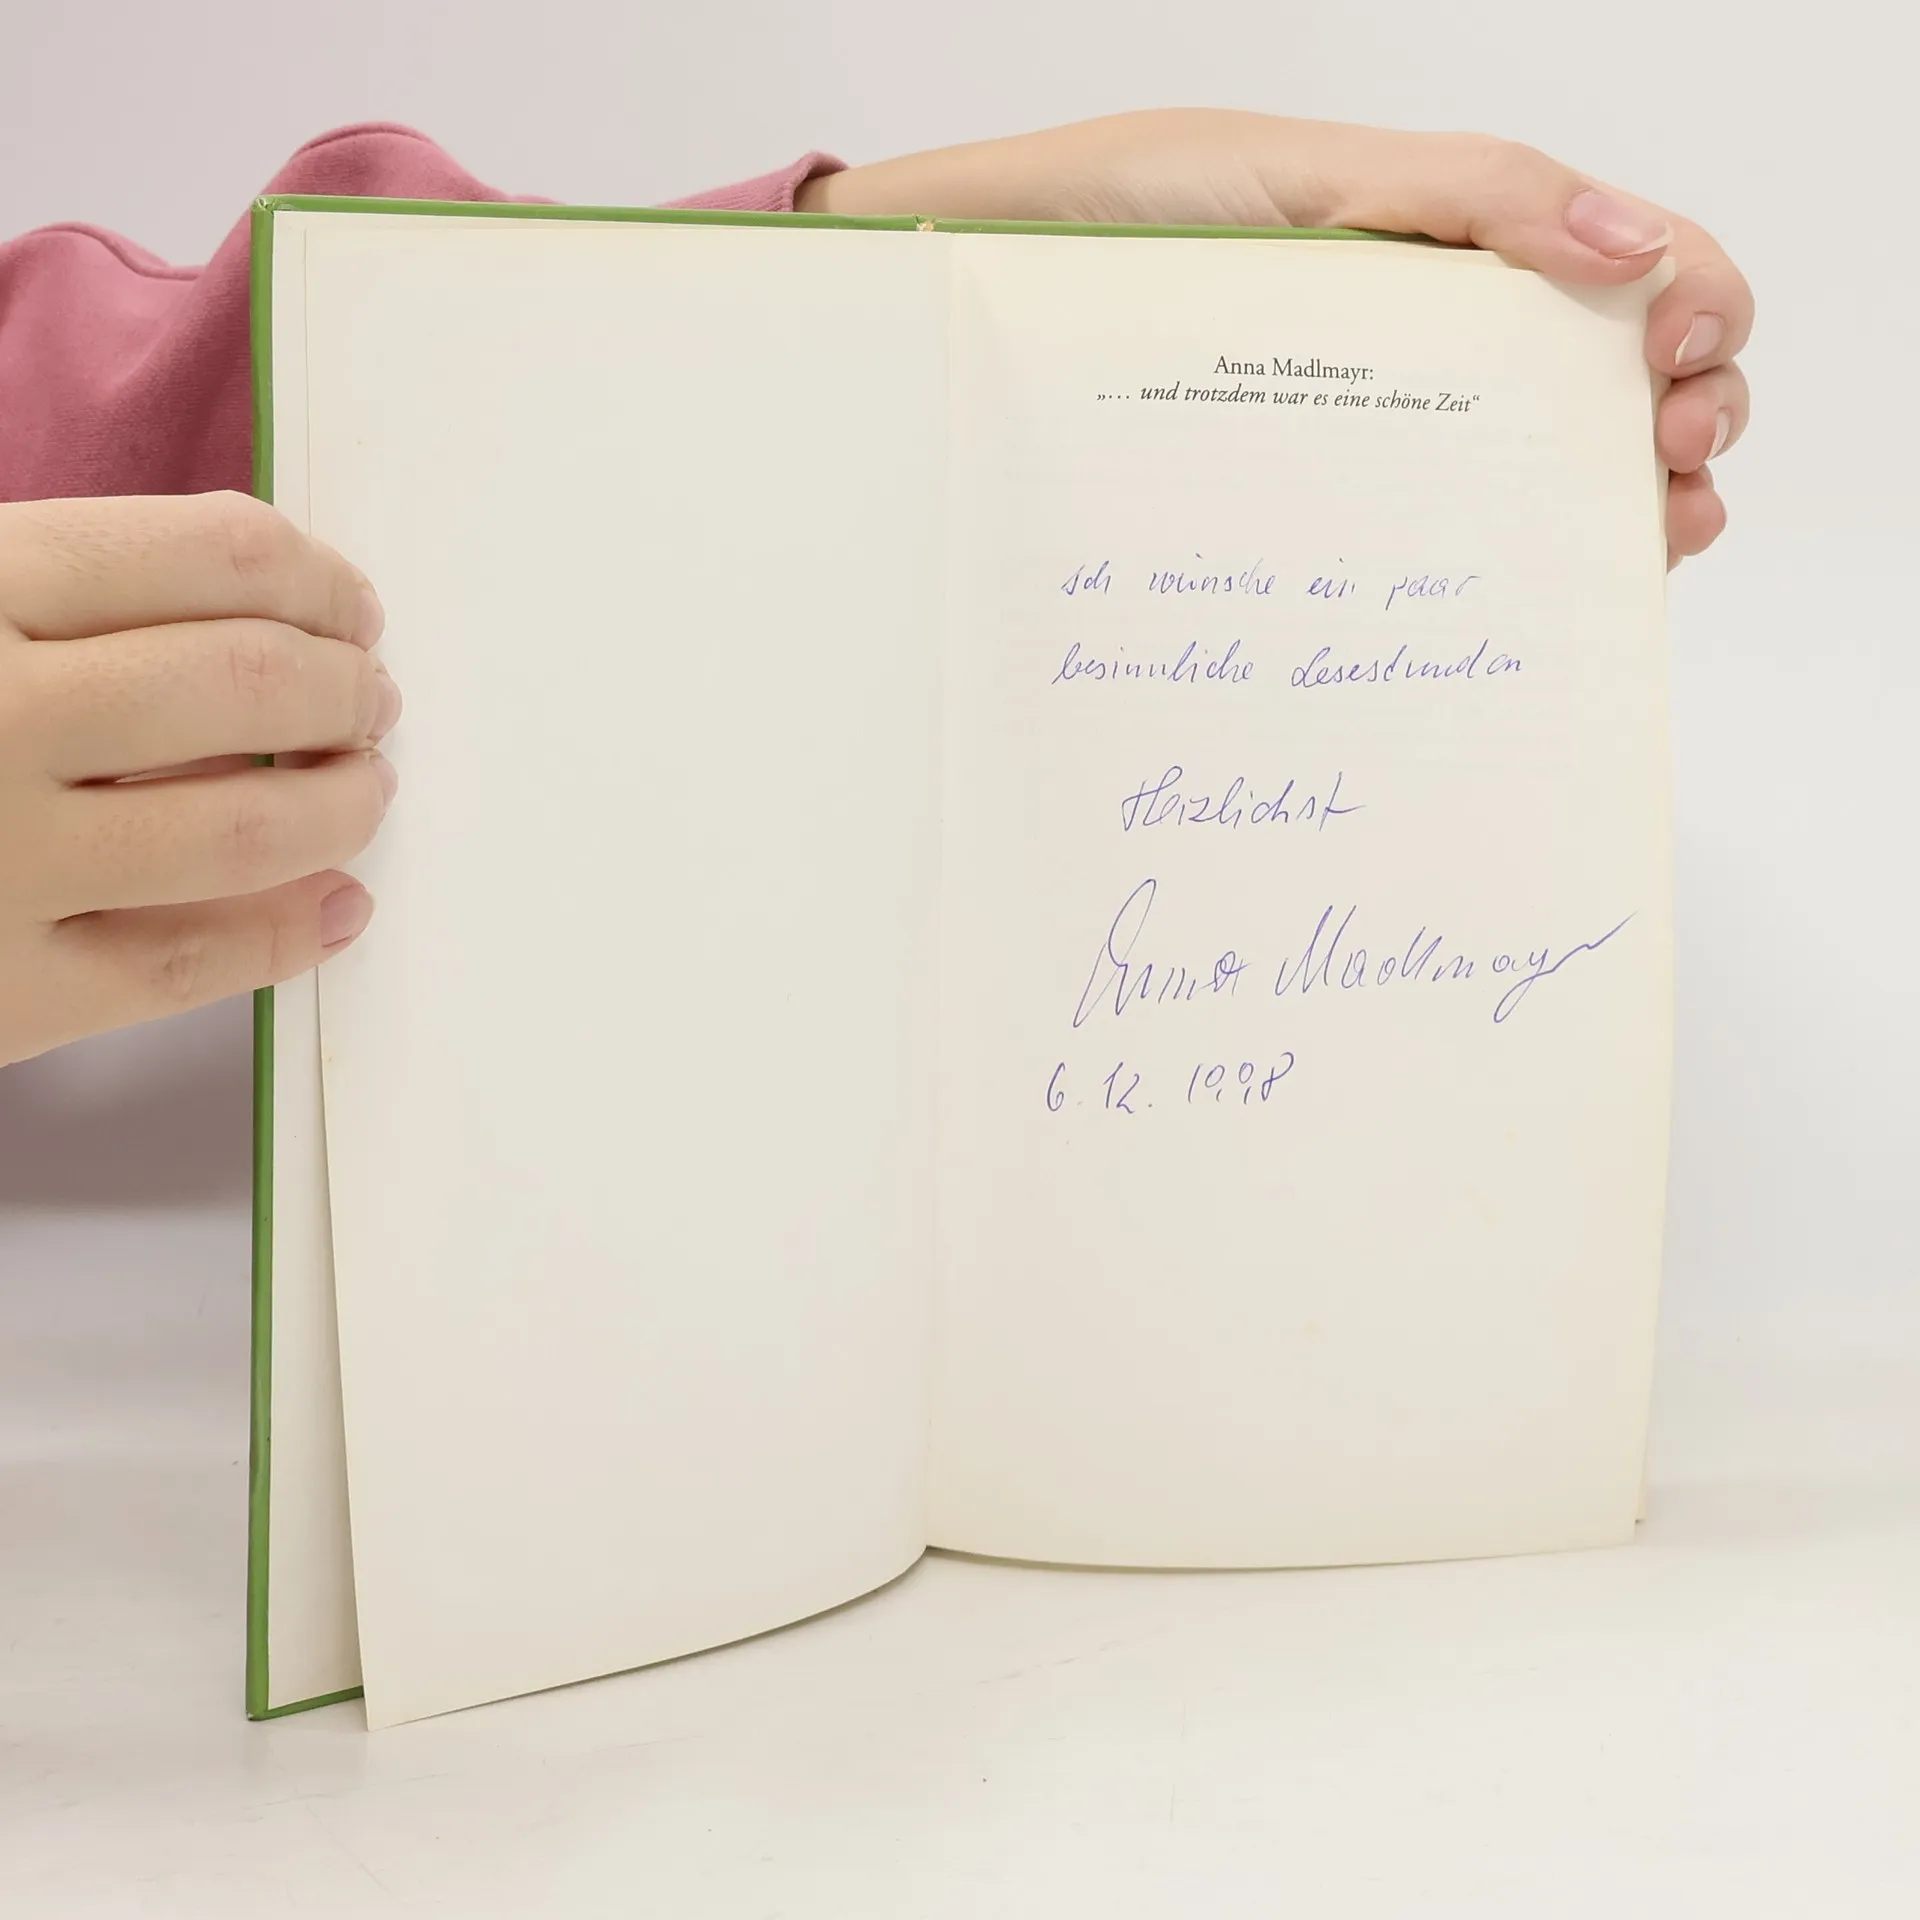 Anna Madlmayr:
„… und trotzdem war es eine schöne Zeit“
Ich wünsche ein paar
besinnliche Lesestunden
Herzlichst
Anna Madlmayr
6. 12. 1998